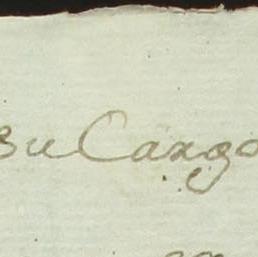 su Cargo